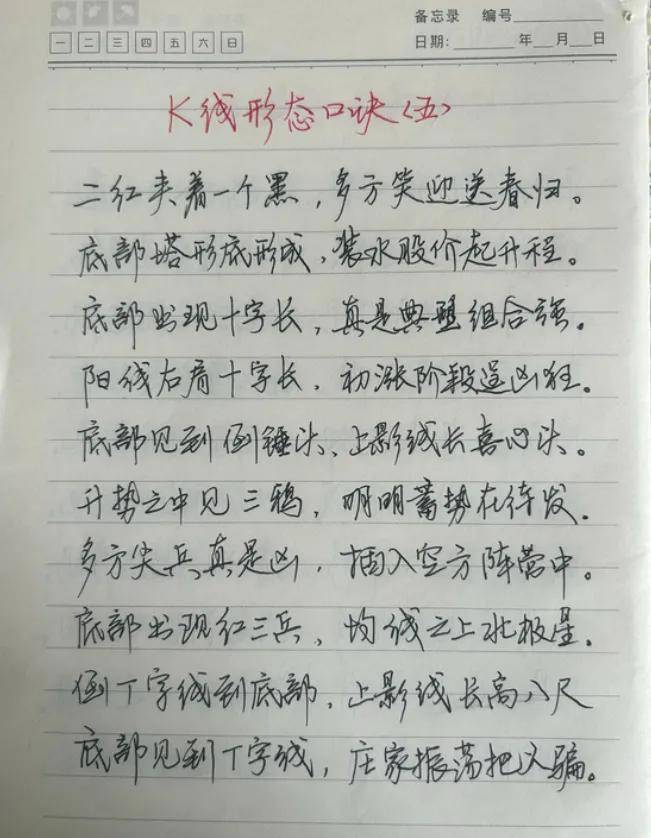 备忘录 编号
一 二 三 四 五 六 日
日期: 年 月 日
K线形态口诀(五)
二红夹着一个黑,多方笑迎送春归。
底部塔形底形成,装水股价起升程。
底部出现十字长,真是典型组合强。
阳线右肩十字长,初涨阶段逞凶狂。
底部见到倒锤头、上影线长喜心头。
升势之中见三鸦,明明蓄势在待发.
多方尖兵真是凶,插入空方阵营中。
底部出现红三兵、均线之上北极星.
倒丁字线到底部,上影线长高八尺
底部见到丁字线,庄家振荡把人骗。